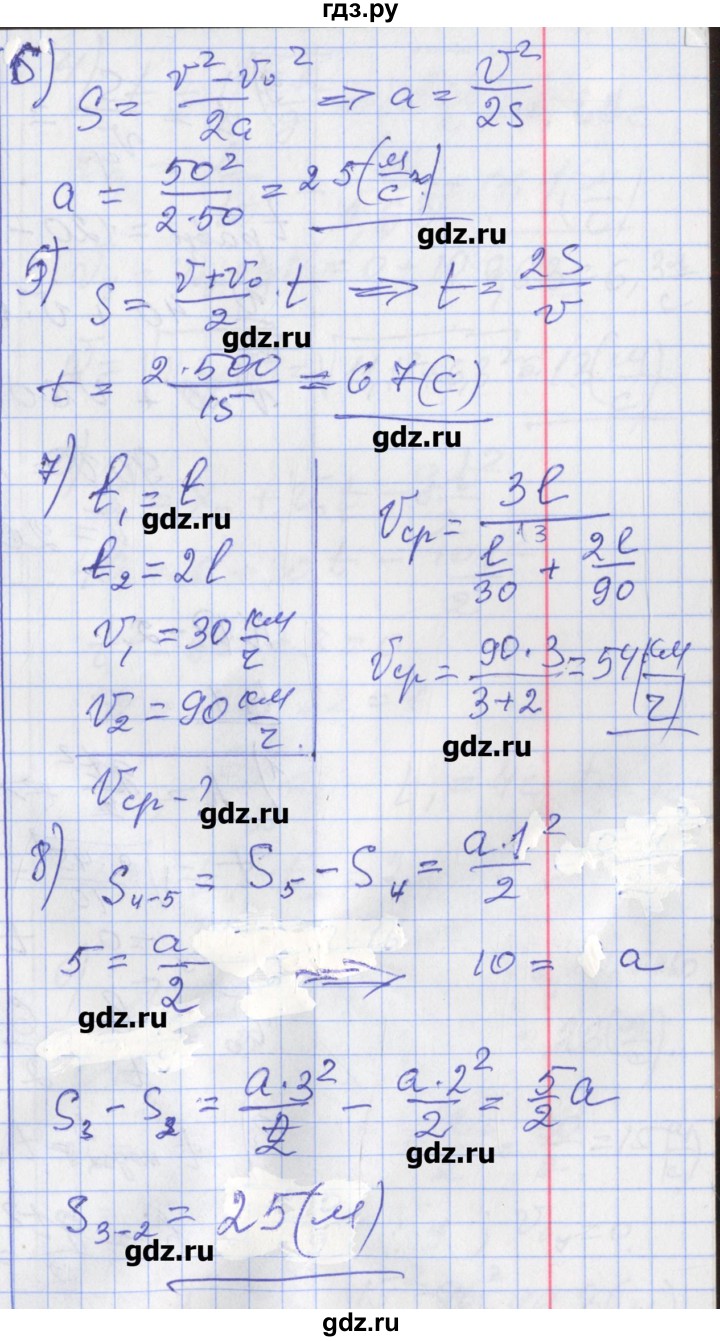 гдз.ру
6)
S = (v² - v₀²)/2a => a = v²/2S
a = 50²/(2·50) = 25 (м/с²)
gdz.ru
5) S = (v + v₀)/2 · t => t = 2S/v
gdz.ru
t = 2·500/15 = 67 (с)
gdz.ru
7) l₁ = l
gdz.ru
l₂ = 2l
v₁ = 30 км/ч
v₂ = 90 км/ч
vср - ?
gdz.ru
vср = 3l/(l/30 + 2l/90)
vср = 90·3/(3+2) = 54 (км/ч)
gdz.ru
8) S₄₋₅ = S₅ - S₄ = a·1²/2
5 = a/2 => 10 = a
gdz.ru
S₃ - S₂ = a·3²/2 - a·2²/2 = 5/2 a
gdz.ru
S₃₋₂ = 25 (м)
gdz.ru
gdz.ru